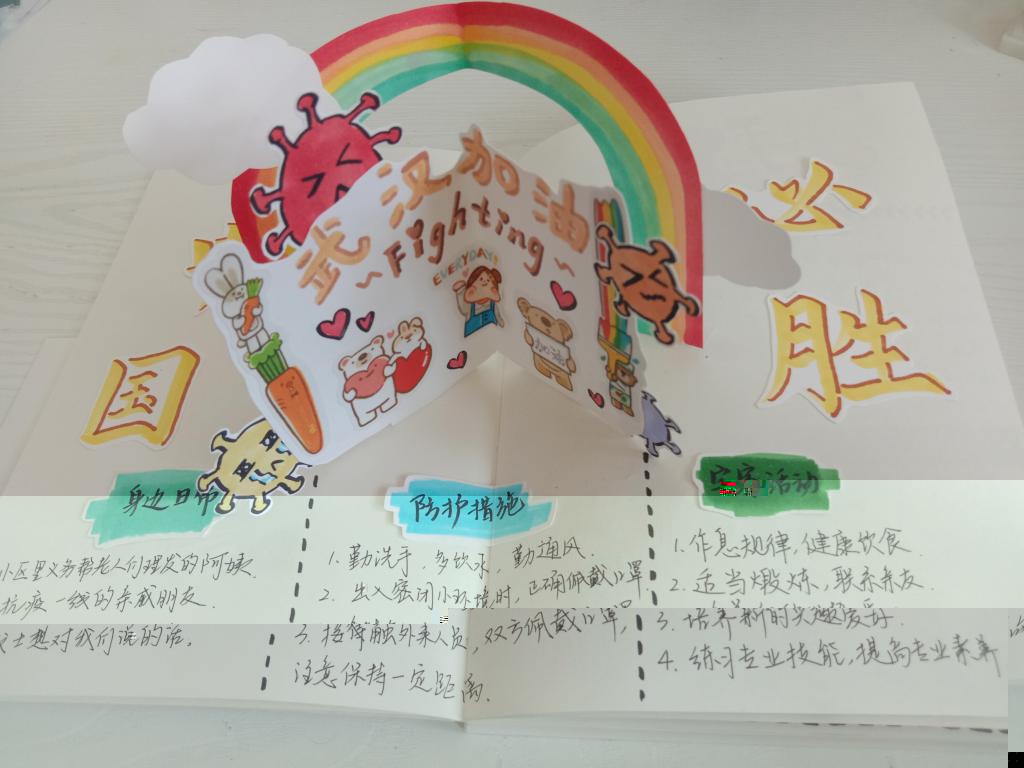 武汉加油
Fighting
EVERYDAY!
加油
必
国
胜
身边日常
防护措施
活动
小区里义务帮老人们理发的阿姨
抗疫一线的亲戚朋友
士想对我们说的话。
1. 勤洗手，多饮水，勤通风.
2. 出入密闭小环境时，正确佩戴口罩
3. 接触外来人员，双方佩戴口罩，
注意保持一定距离.
1. 作息规律，健康饮食
2. 适当煅炼，联系亲友.
3. 培养新的兴趣爱好.
4. 练习专业技能，提高专业素养